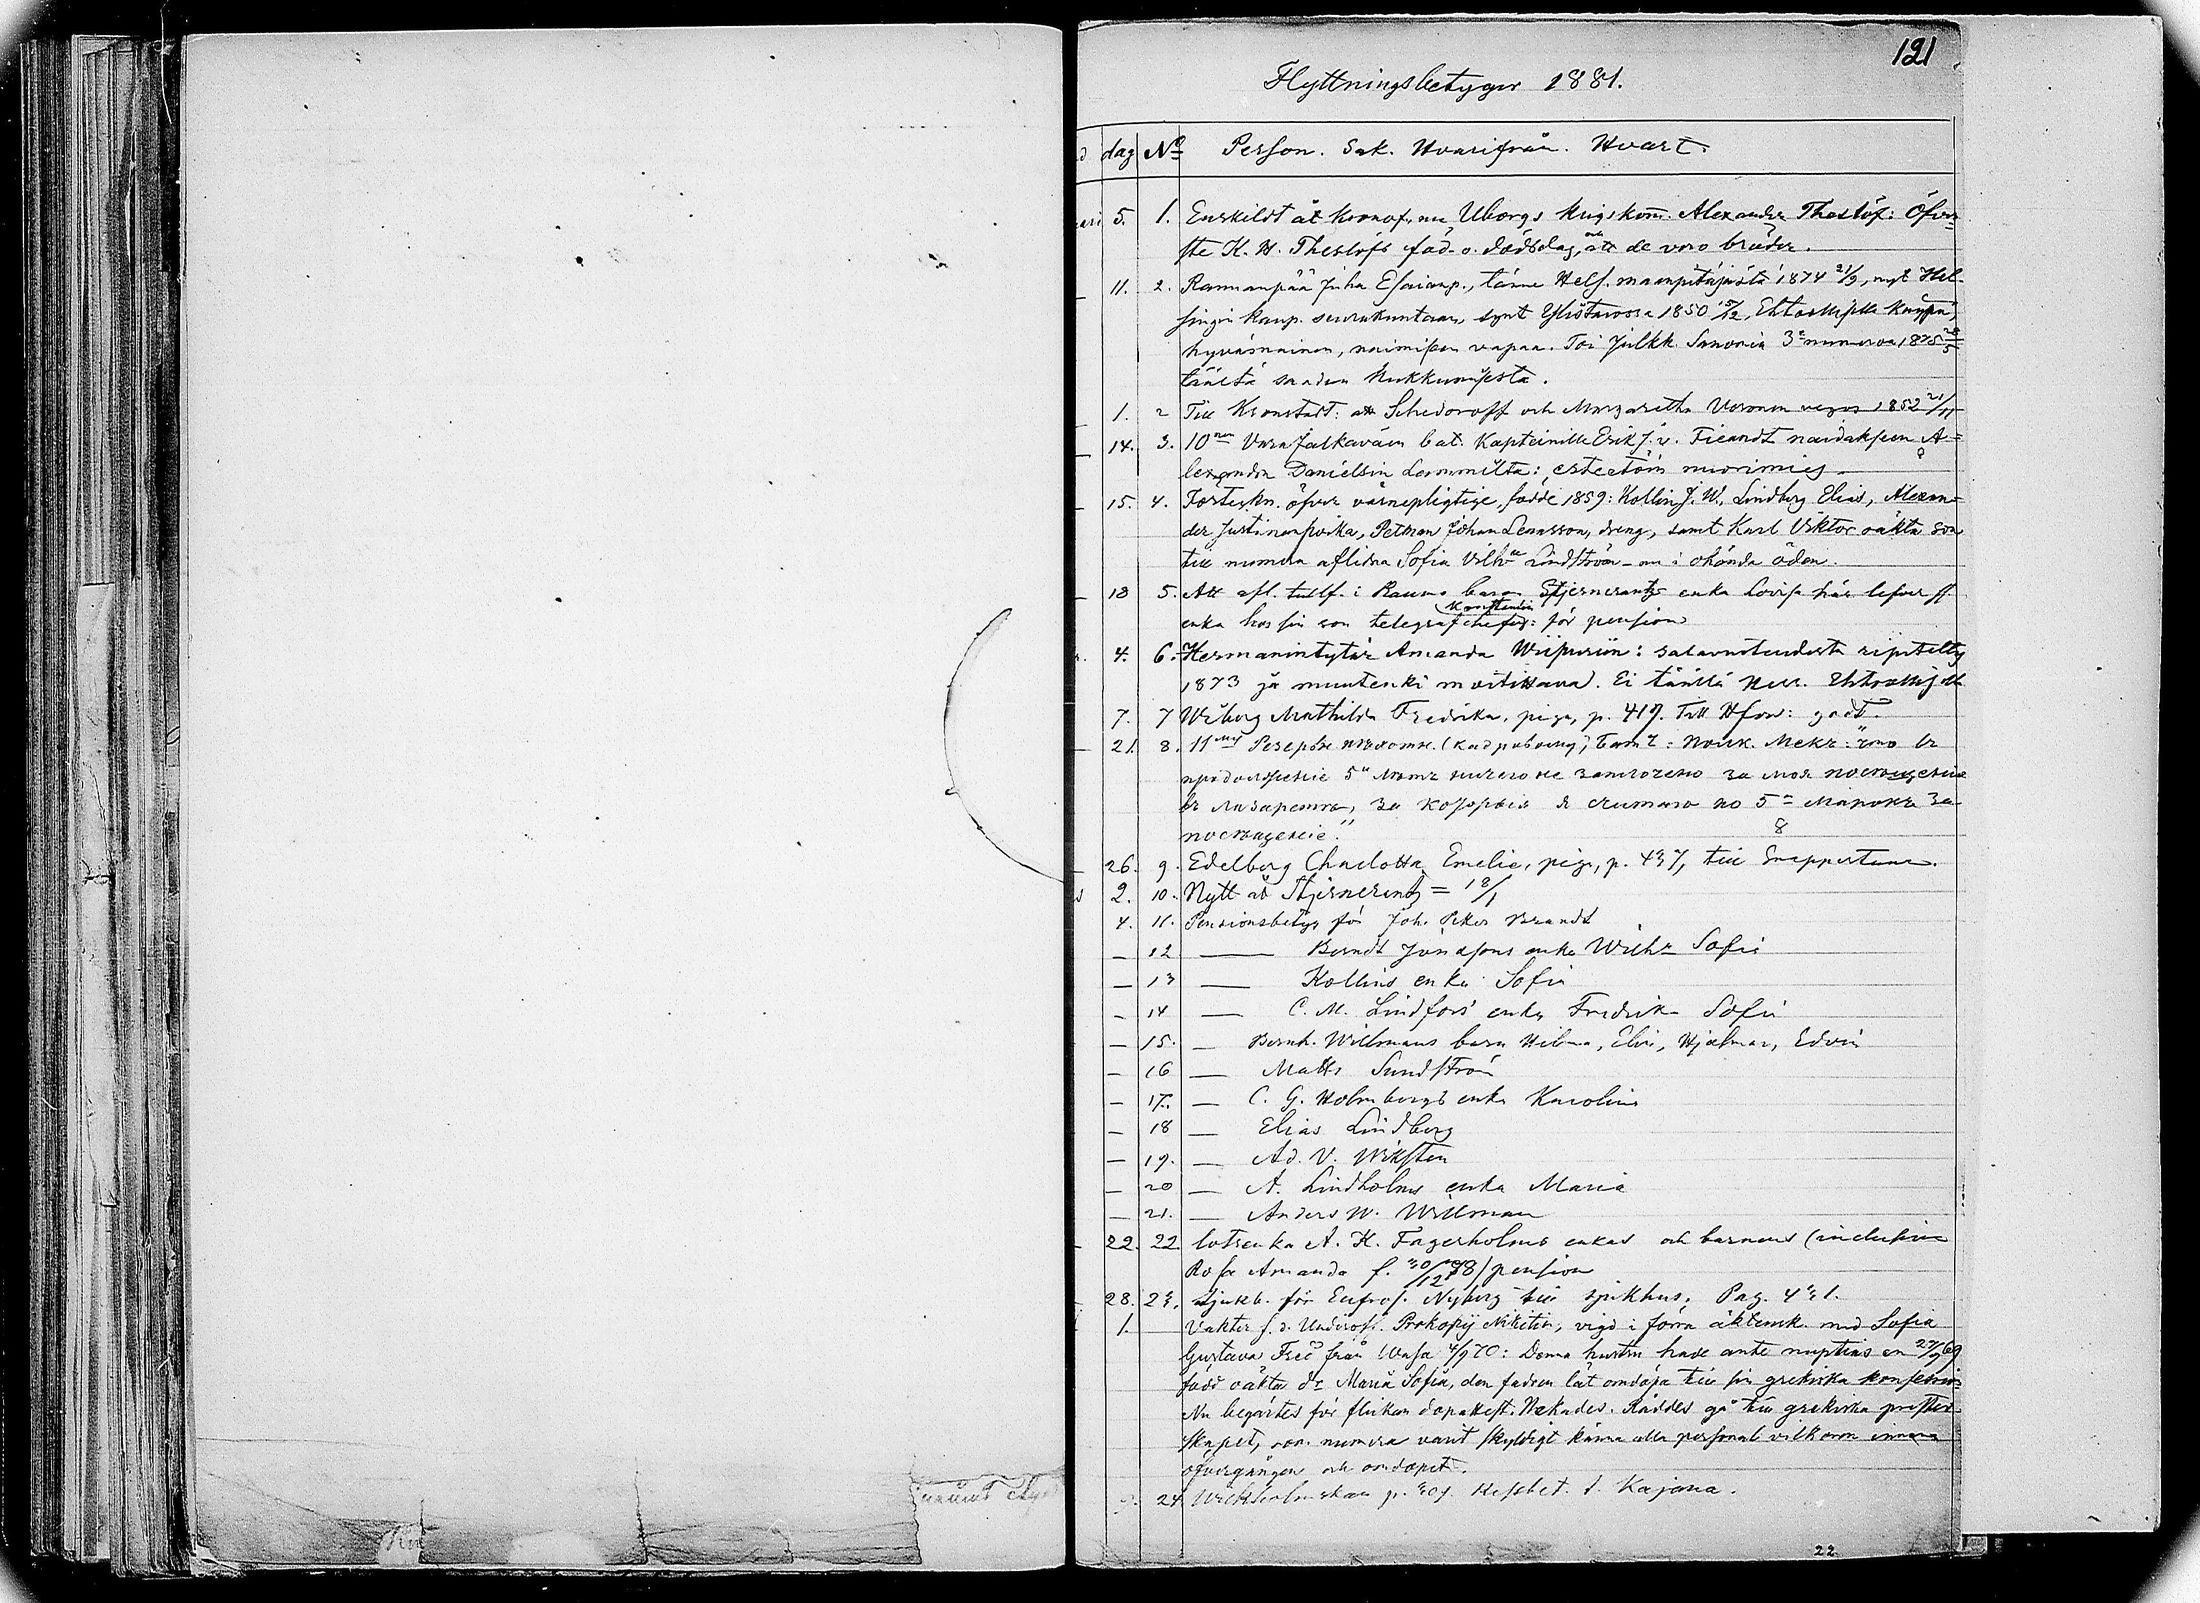 121
Flyttningsbetyger 1881.
dag No Person. Sak. Hvarifrån. Hvart.
5. 1. Enskildt åt kronof. nu Uborgs krigskom. Alexander Theslöf: Öfver=
ste K. H. Theslöfs föd. o. dödsdag, och att de voro bröder.
11. 2. Rannanpää Juha Esaianp., tänne Hels. maapitäjästä 1874 21/9, nyt Hel-
singin kaup. seurakuntaan, synt Ylistarossa 1850 15/12, Ehtoollisella käypä,
hyvämainen, naimisen vapaa. Toi Julkk. Sanomia 3 numeroa 1875
täältä saaden kukkumisesta.
1. 2 Till Kronstadt: att Schedoroff och Margaretha Voronen vigos 1852 21/11
14. 3. 10 Vara Jalkaväen bat. Kapteinille Erik J. v. Fieandt naidakseen A=
lexandra Danielsin Lammilta: esteetöin nuorimies.
15. 4. Förteckn. öfver värnepligtige, födde 1859: Kollin J. W., Lindberg Elias, Alexan=
der Justinanpoika, Petman Johan Lenasson, dreng, samt Karl Viktor oäkta son
till numera aflidna Sofia Vilh Lindström - nu i okända öden.
18 5. Att afl. tullf. i Raumo baron Stjernerantz enka Lovisa här lefver ss.
enka hos sin son telegrafchefen: för pension
4. 6. Hermanintytär Amanda Wiipuriin: salavuoteudesta ripitetty
1873 ja muutenki moitittava. Ei täällä Ehtoollisella
7. 7 Wiborg Mathilda Fredrika, piga, p. 419. Till Hfors: godt.
21. 8. 11 Резервн. пѣхотн. (кадровому) бат: что въ
продолженіе 5 лѣтъ ничего не заплочено за моя посѣщенія
въ лазаретъ, за которыя я считаю по 5 марокъ за
посѣщеніе."
8
26. 9. Edelberg Charlotta Emelie, piga, p. 437, till Snappertuna.
2. 10. Nytt åt Stjernerentz = 18/1
4. 11. Pensionsbetyg för Joh. Peter Brandt
— 12 — Berndt Jonassons enka Wilh Sofia
— 13 — Kollins enka Sofia
— 14 — C. M. Lindfors' enka Fredrika Sofia
— 15. — Bernh. Willmans barn Hilma, Elin, Hjalmar, Edvin
— 16 — Matts Sundström
— 17. — C. G. Holmbergs enka Karolina
— 18 — Elias Lindberg
— 19. — Ad. V. Wiksten
— 20 — A. Lindholms enka Maria
— 21. — Anders W. Willman
22. 22 lotsenka A. H. Fagerholms enkas och barnens (inclusive
Rosa Amanda f. 30/12 78) pension
28. 23. Sjukb. för Eufros. Nyberg till sjukhus. Pag. 431.
1. Vakter f. d. Underoff. Prokopij Nikitin, vigd i förra äktensk. med Sofia
Gustava Freé från Wasa 4/9 70: Denna hustru hade ante nuptias en 27/9 69
född oäkta dr Maria Sofia, den fadren lät omdöpa till sin grekiska konfession
Nu begärtes för flickan dopattest. Nekades. Råddes gå till grekiska prester=
skapet, som numera varit skyldigt känna alla personal vilkoren innan
öfvergången och omdopet.
24 Wickholmskan p. 309. Hefsbet. t. Kajana.
22